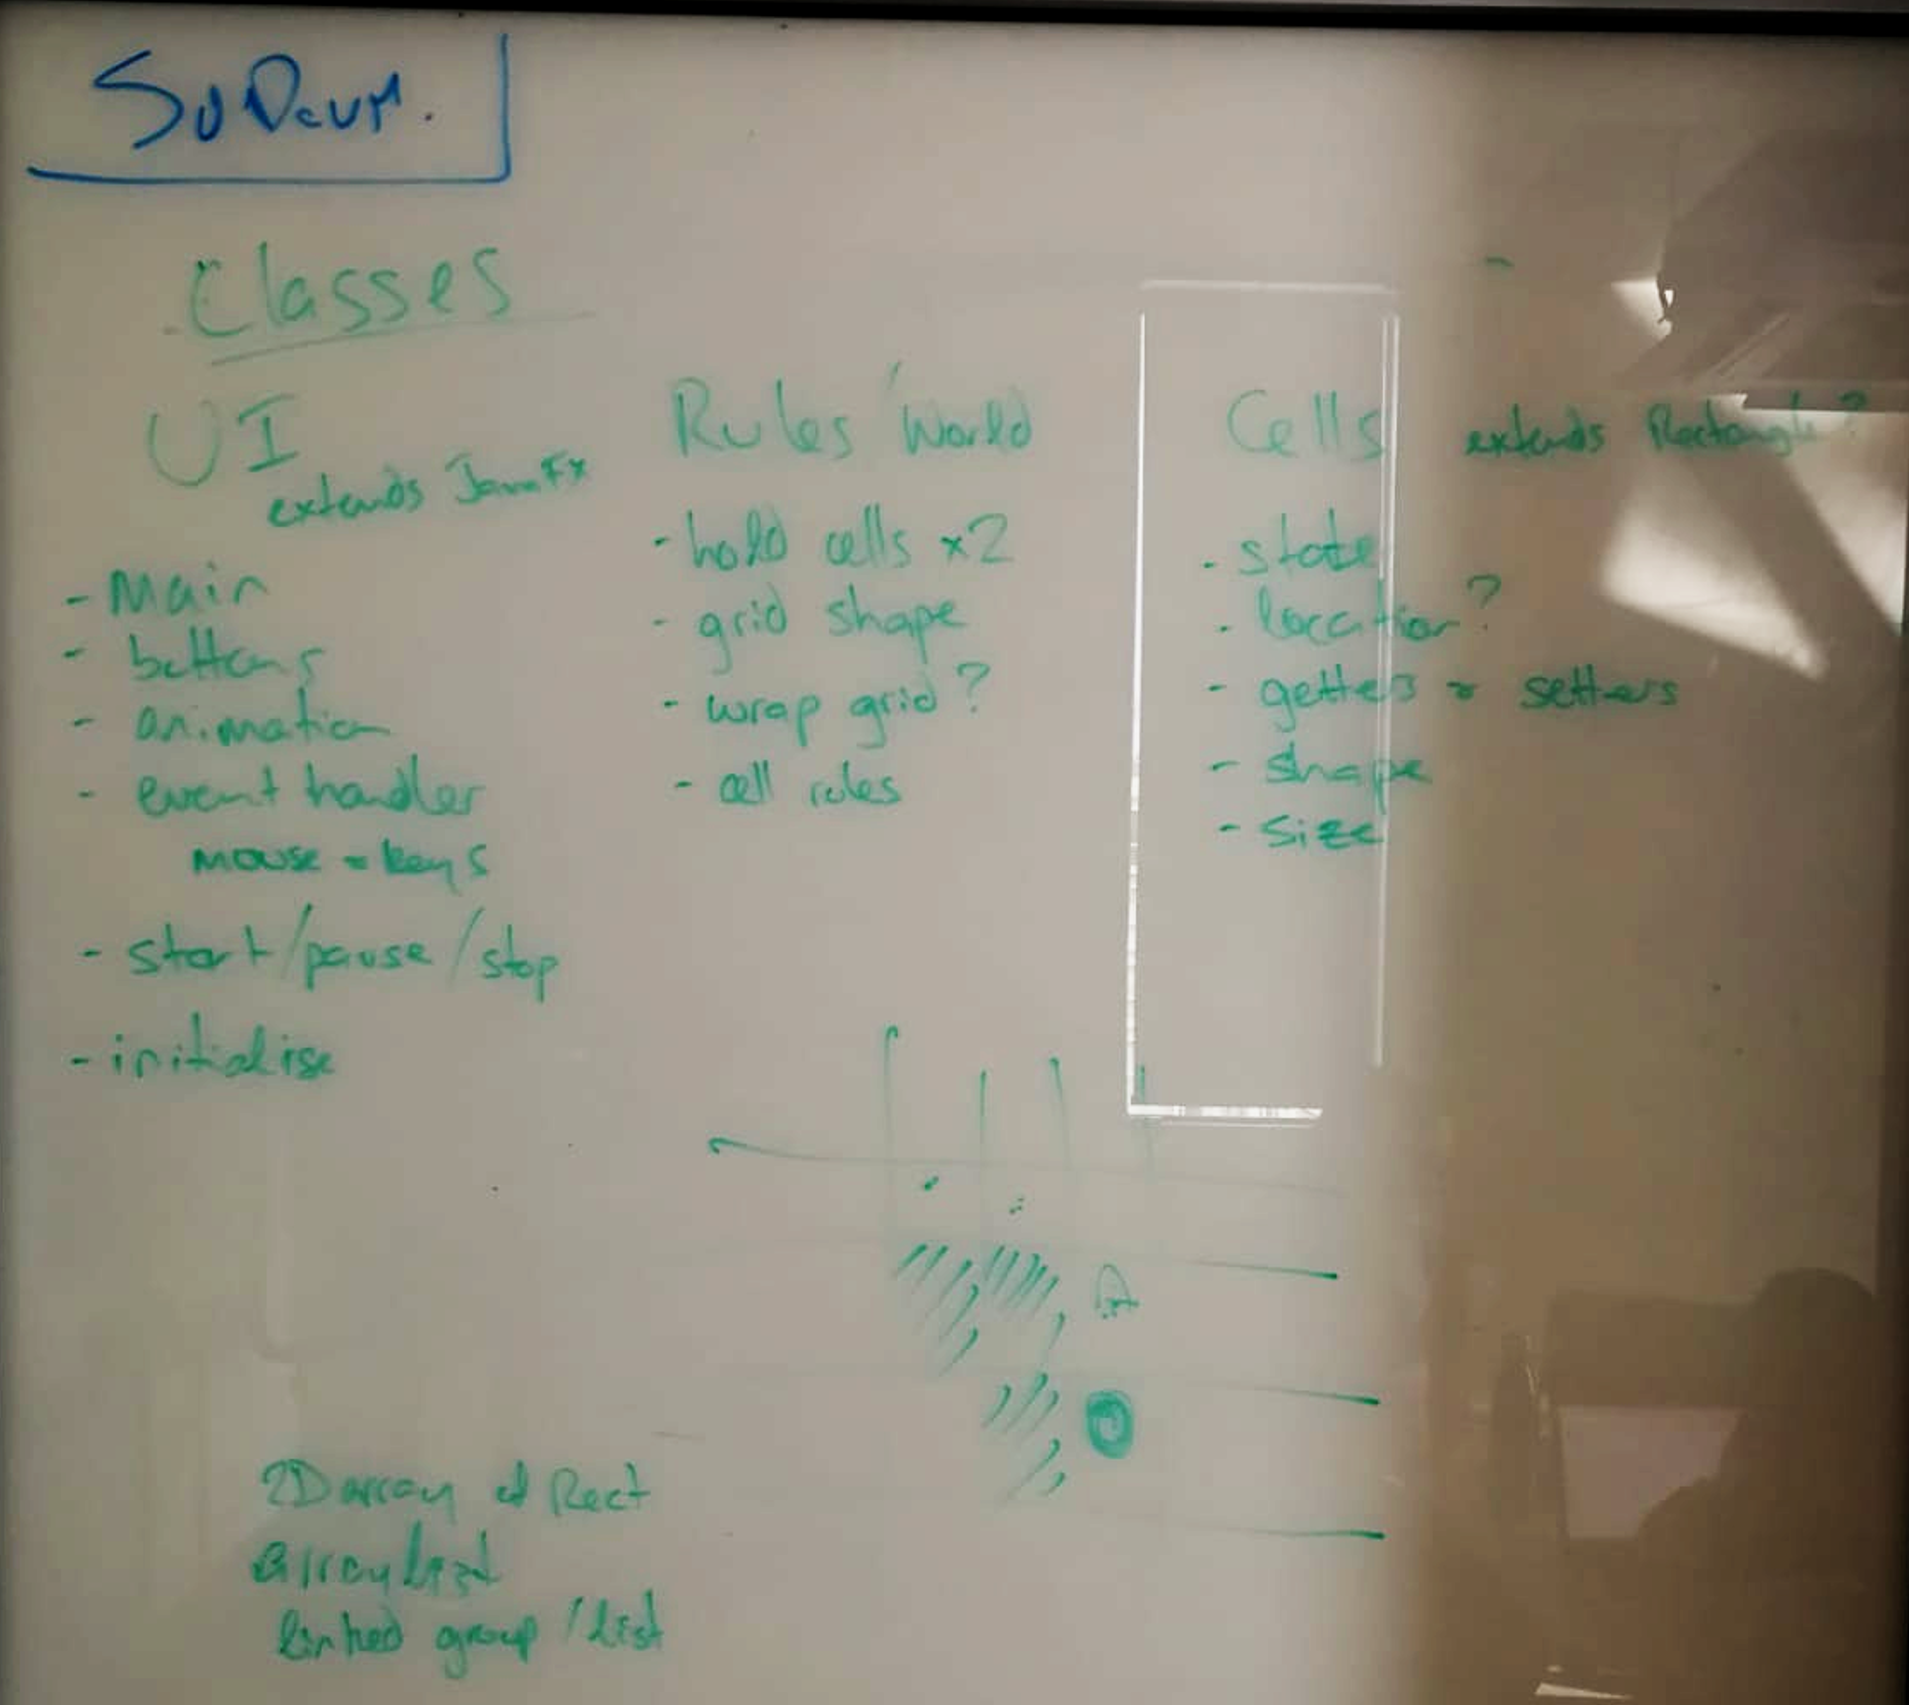 Classes
UI
extends JavaFx
- Main
- buttons
- animation
- event handler
mouse & keys
- start/pause/stop
- initialise
Rules/World
- hold cells x2
- grid shape
- wrap grid?
- cell rules
Cells extends Rectangle?
- state
- location?
- getters & setters
- shape
- size
2D array of Rect
arraylist
linked group/list